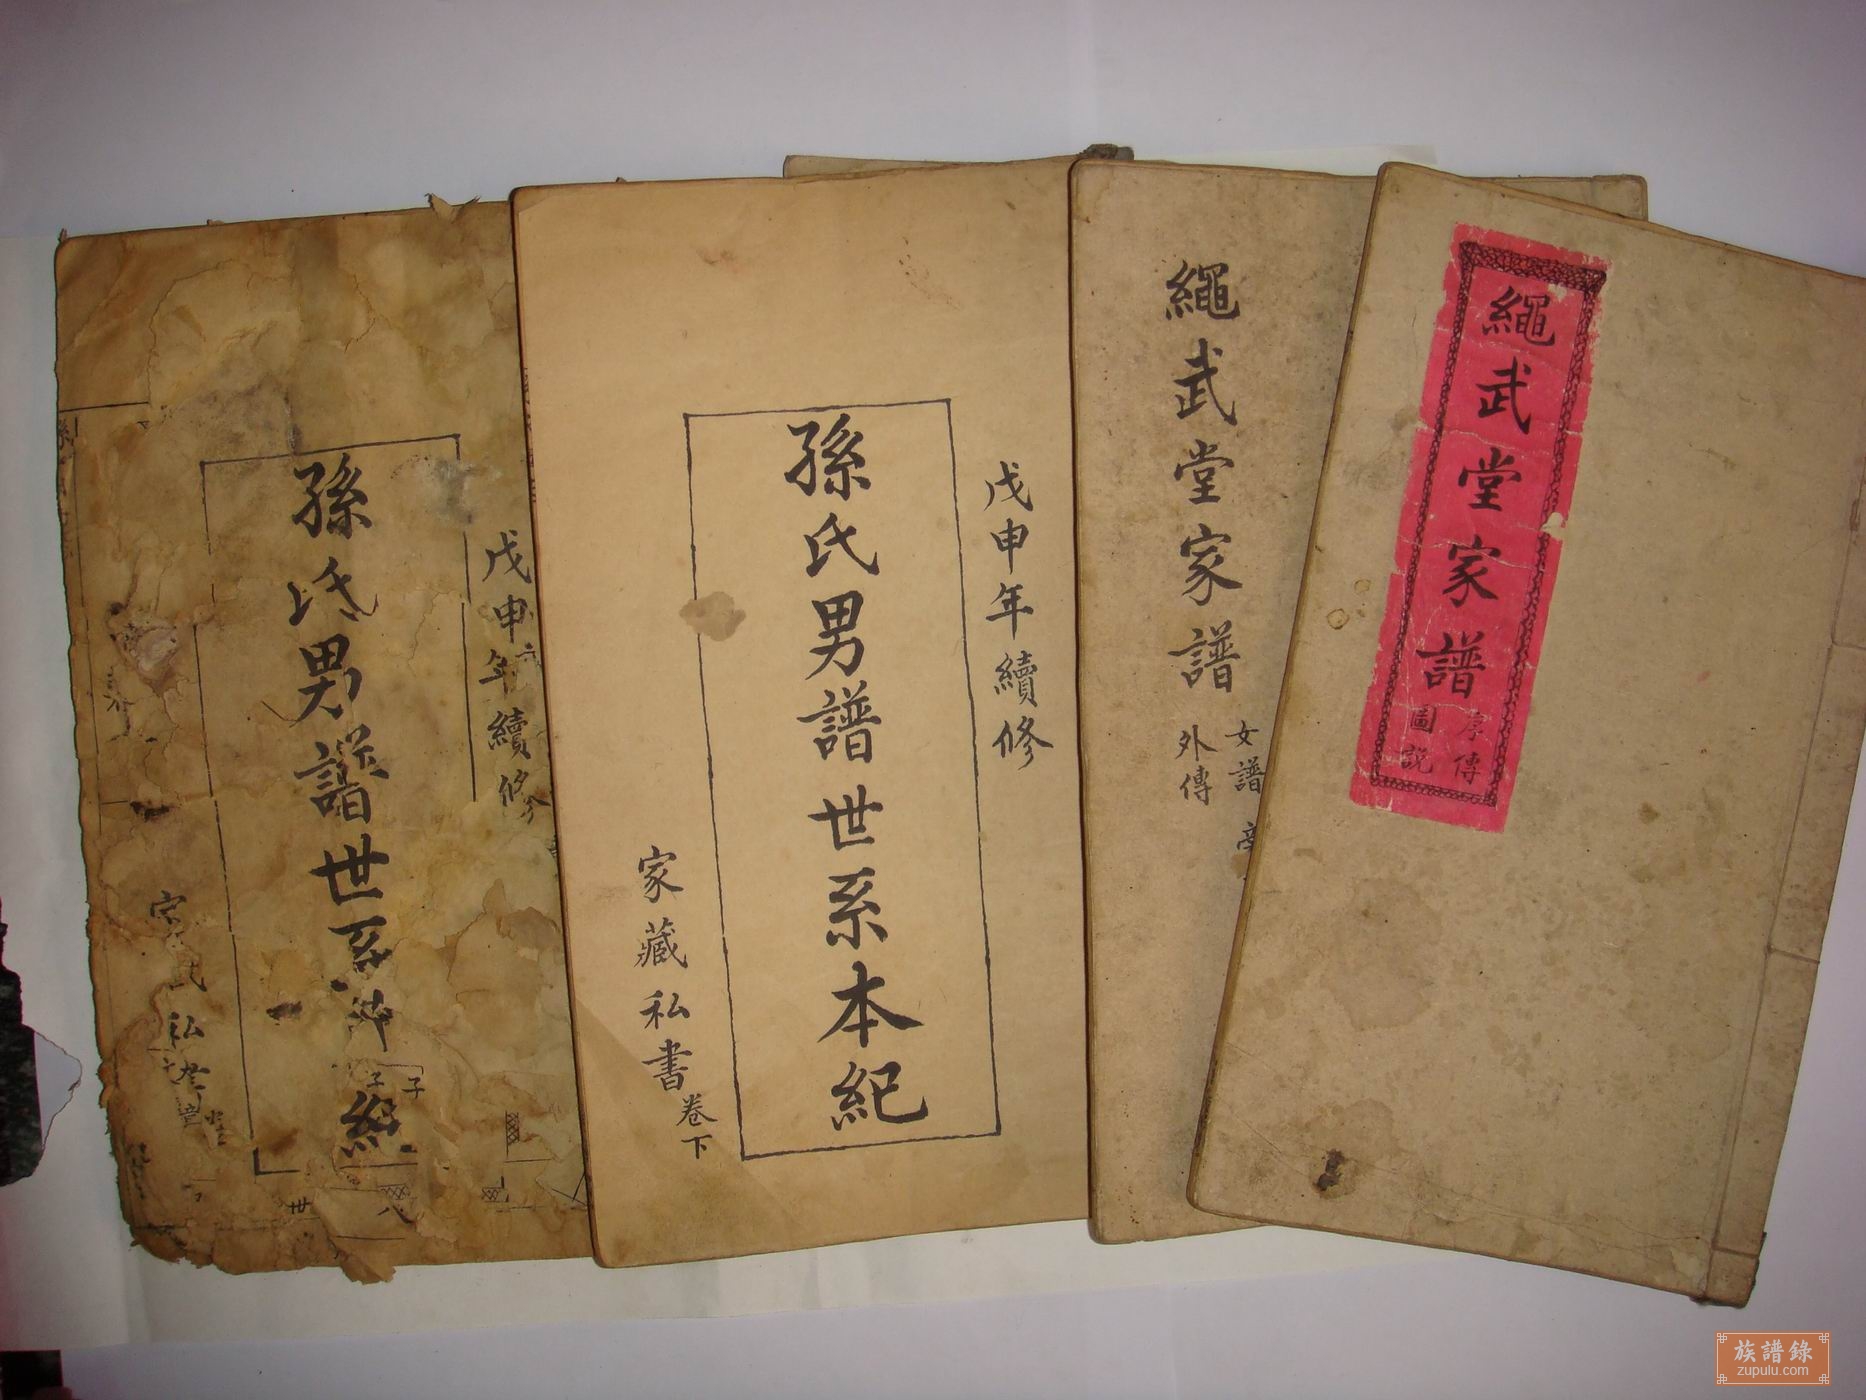 繩武堂家譜
序傳
圖説
繩武堂家譜
女譜
外傳
戊申年續修
孫氏男譜世系本紀
家藏私書
卷下
戊申年續修
孫氏男譜世系
紀
私
族譜錄
zupulu.com